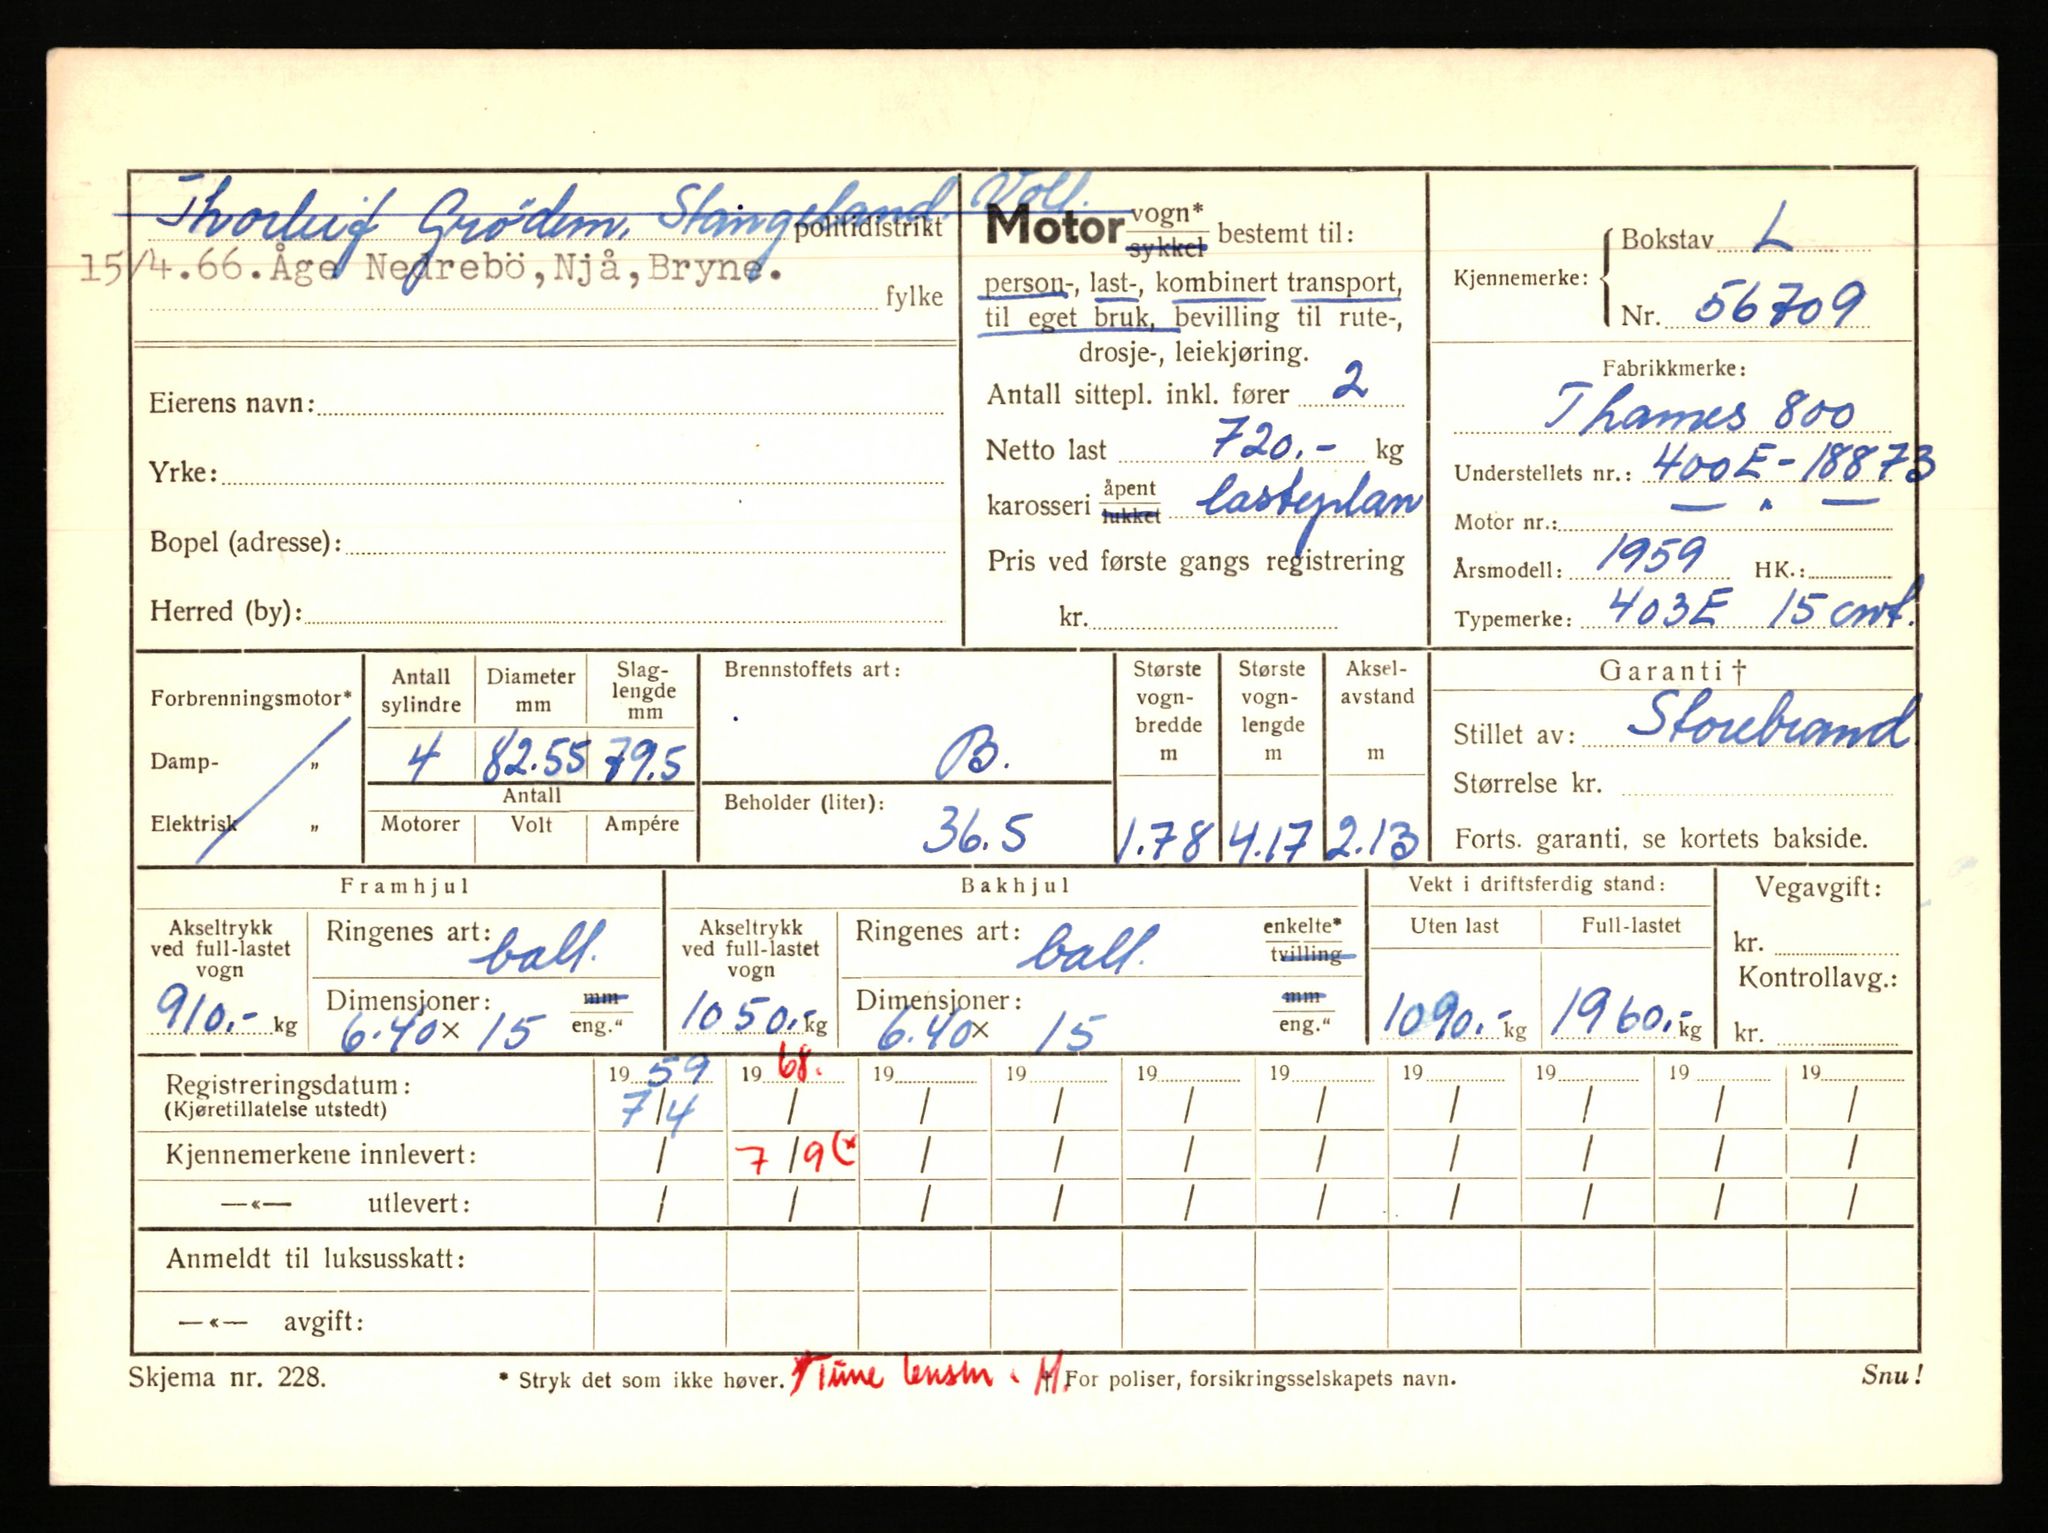 Thorleif Grödem, Stangeland Voll.
politidistrikt
15/4.66. Åge Nedrebö, Njå, Bryne.
fylke
Eierens navn:
Yrke:
Bopel (adresse):
Herred (by):
Motor vogn* sykkel bestemt til:
person-, last-, kombinert transport,
til eget bruk, bevilling til rute-,
drosje-, leiekjøring.
Antall sittepl. inkl. fører 2
Netto last 720.- kg
karosseri åpent lukket lasteplan
Pris ved første gangs registrering
kr.
Kjennemerke: Bokstav L
Nr. 56709
Fabrikkmerke:
Thames 800
Understellets nr.: 400E-18873
Motor nr.: — " —
Årsmodell: 1959 HK.:
Typemerke: 403E 15 cwt.
Forbrenningsmotor*
Damp- "
Elektrisk "
Antall sylindre Diameter mm Slag-lengde mm
4 82.55 79.5
Antall
Motorer Volt Ampére
Brennstoffets art:
B.
Beholder (liter):
36.5
Største vogn-bredde m
1.78
Største vogn-lengde m
4.17
Aksel-avstand m
2.13
Garanti †
Stillet av: Storebrand
Størrelse kr.
Forts. garanti, se kortets bakside.
Framhjul
Akseltrykk ved full-lastet vogn
910.- kg
Ringenes art: ball.
Dimensjoner: mm eng."
6.40 x 15
Bakhjul
Akseltrykk ved full-lastet vogn
1050.- kg
Ringenes art: ball. enkelte* tvilling
Dimensjoner: mm eng."
6.40 x 15
Vekt i driftsferdig stand:
Uten last Full-lastet
1090.- kg 1960.- kg
Vegavgift:
kr.
Kontrollavg.:
kr.
Registreringsdatum: 19 59 19 68. 19 19 19 19 19 19 19 19
(Kjøretillatelse utstedt) 7/4 / / / / / / / / /
Kjennemerkene innlevert: / 7/9 (* / / / / / / / /
—«— utlevert: / / / / / / / / / /
Anmeldt til luksusskatt:
—«— avgift:
Skjema nr. 228.
* Stryk det som ikke høver.
† For poliser, forsikringsselskapets navn.
Snu!